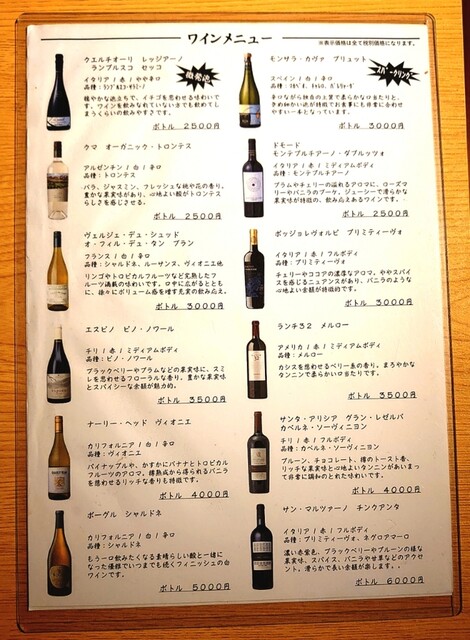 ワインメニュー
※表示価格は全て税別価格になります。
ウエルチオーリ レッジアーノ
ランブルスコ セッコ
微発泡
イタリア / 赤 / やや辛口
品種：ランブルスコ
穏やかな泡立ちで、イチゴを思わせる味わいです。
ワインを飲みなれていない方でも飲めてしまうくらいの飲みやすさです。
ボトル 2500円
クマ オーガニック・トロンテス
アルゼンチン / 白 / 辛口
品種：トロンテス
バラ、ジャスミン、フレッシュな桃や花の香り。
豊かな果実味があり、心地よい酸がトロンテス
らしさを感じさせる。
ボトル 2500円
ヴェルジェ・デュ・シュッド
オ・フィル・デュ・タン ブラン
フランス / 白 / 辛口
品種：シャルドネ、ルーサンヌ、ヴィオニエ他
リンゴやトロピカルフルーツなど完熟したフ
ルーツ満載の味わいです。口中に広がるととも
に、徐々にボリューム感を増す充実の飲み応え。
ボトル 3000円
エスピノ ピノ・ノワール
チリ / 赤 / ミディアムボディ
品種：ピノ・ノワール
ブラックベリーやプラムなどの果実味に、スミ
レを思わせるフローラルな香り。豊かな果実味
とスパイシーな余韻が魅力的。
ボトル 3500円
ナーリー・ヘッド ヴィオニエ
カリフォルニア / 白 / 辛口
品種：ヴィオニエ
パイナップルや、かすかにバナナとトロピカル
フルーツのアロマ。樽熟成から得られるバニラ
を思わせるリッチな香りも特徴です。
ボトル 4000円
ボーグル シャルドネ
カリフォルニア / 白 / 辛口
品種：シャルドネ
もう一口飲みたくなる素晴らしい酸と一緒に
なった優雅でいつまでも続くフィニッシュの白
ワインです。
ボトル 5000円
モンサラ・カヴァ ブリュット
スパークリング
スペイン / 白 / 辛口
辛口ながら独自の上質で柔らかな泡だちと、
きめ細かい泡が特徴でお食事にも非常に合わせ
やすい一本となっています。
ボトル 3000円
ドモード
モンテプルチアーノ・ダブルッツォ
イタリア / 赤 / ミディアムボディ
品種：モンテプルチアーノ
プラムやチェリーの溢れるアロマに、ローズマ
リーやバニラのブーケ。ジューシーで滑らかな
果実味が特徴の、飲み応えあるワインです。
ボトル 2500円
ポッジョレヴォルピ プリミティーヴォ
イタリア / 赤 / フルボディ
品種：プリミティーヴォ
チェリーやココアの濃厚なアロマ。ややスパイ
スを感じるニュアンスがあり、バニラのような
心地よい余韻が特徴的です。
ボトル 3000円
ランチ32 メルロー
アメリカ / 赤 / ミディアムボディ
品種：メルロー
カシスを思わせるベリー系の香り。まろやかな
タンニンで柔らかい口当たりです。
ボトル 3500円
サンタ・アリシア グラン・レゼルバ
カベルネ・ソーヴィニヨン
チリ / 赤 / フルボディ
品種：カベルネ・ソーヴィニヨン
プルーン、チョコレート、樽のトースト香。
リッチな果実味と心地よいタンニンがあいまっ
て非常に調和のとれた味わいです。
ボトル 4000円
サン・マルツァーノ チンクアンタ
イタリア / 赤 / フルボディ
品種：プリミティーヴォ、ネグロアマーロ
濃い赤紫色、ブラックベリーやプルーンの様な
果実味、スパイス、バニラや甘草などのアクセ
ント。滑らかで長い余韻が楽します。
ボトル 6000円